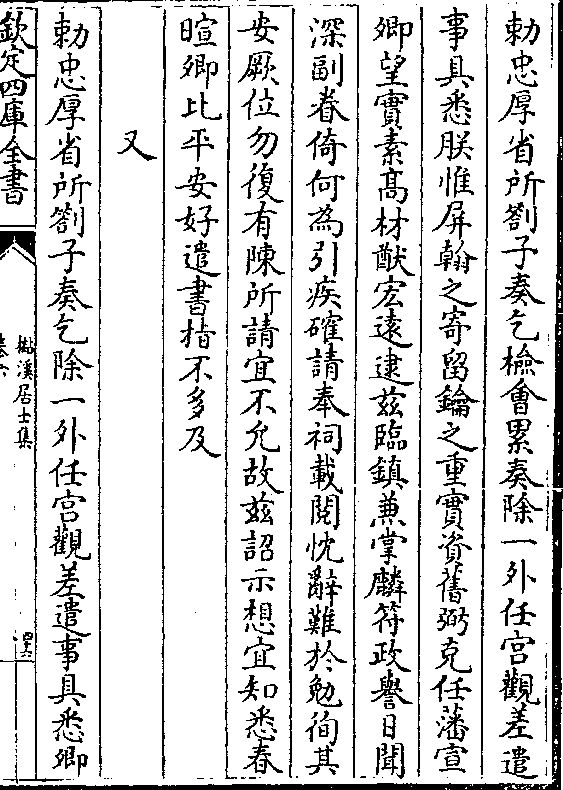 勅忠厚省所劄子奏乞檢會累奏除一外任宫觀差遣
事具悉朕惟屏翰之寄留鑰之重實資舊弼克任藩宣
卿望實素髙材猷宏遠逮兹臨鎮兼掌麟符政譽日聞
深副眷倚何為引疾確請奉祠載閲忱辭難於勉徇其
安厥位勿復有陳所請宜不允故兹詔示想宜知悉春
暄卿比平安好遣書指不多及
又
勅忠厚省所劄子奏乞除一外任宫觀差遣事具悉卿
欽定四庫全書
溪居士集
卷六